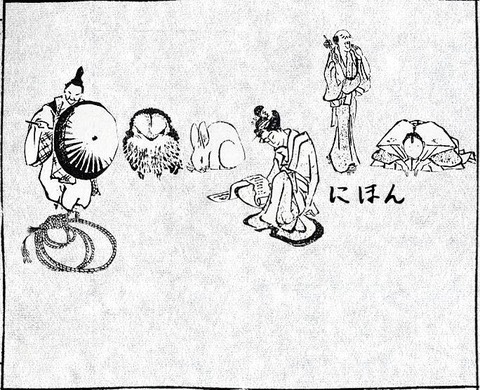 にほん